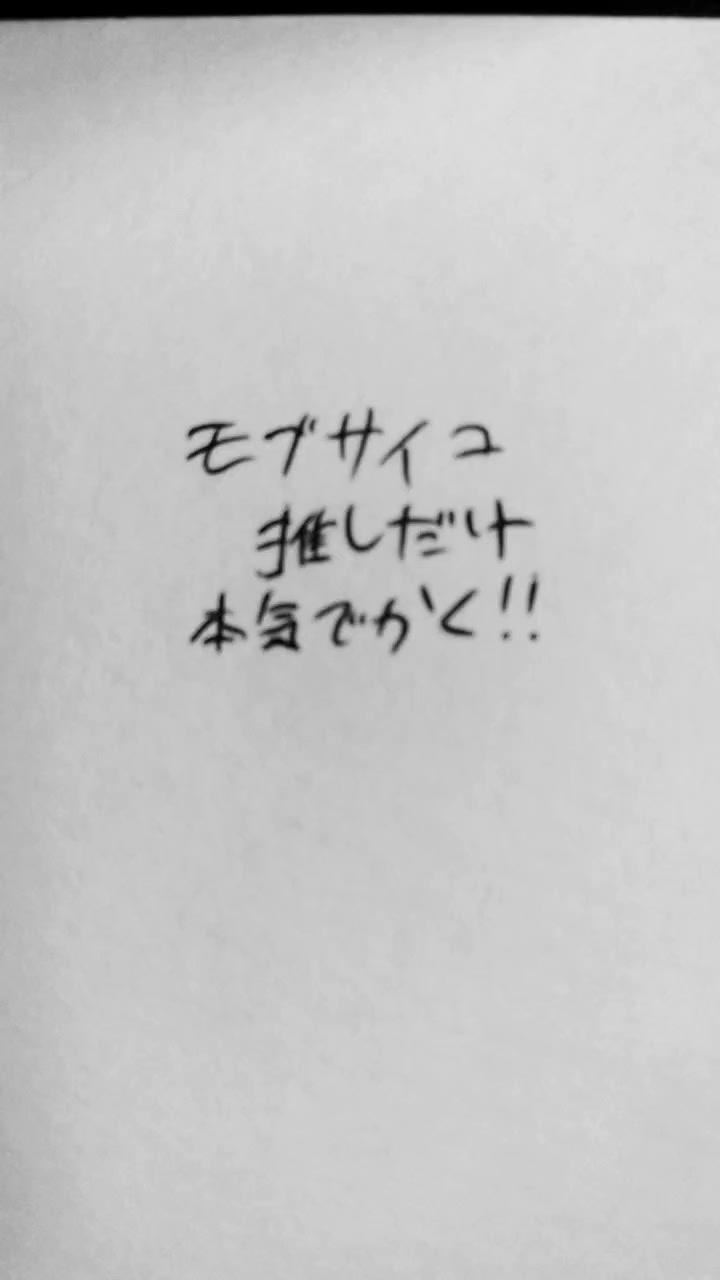 モブサイコ
推しだけ
本気でかく!!